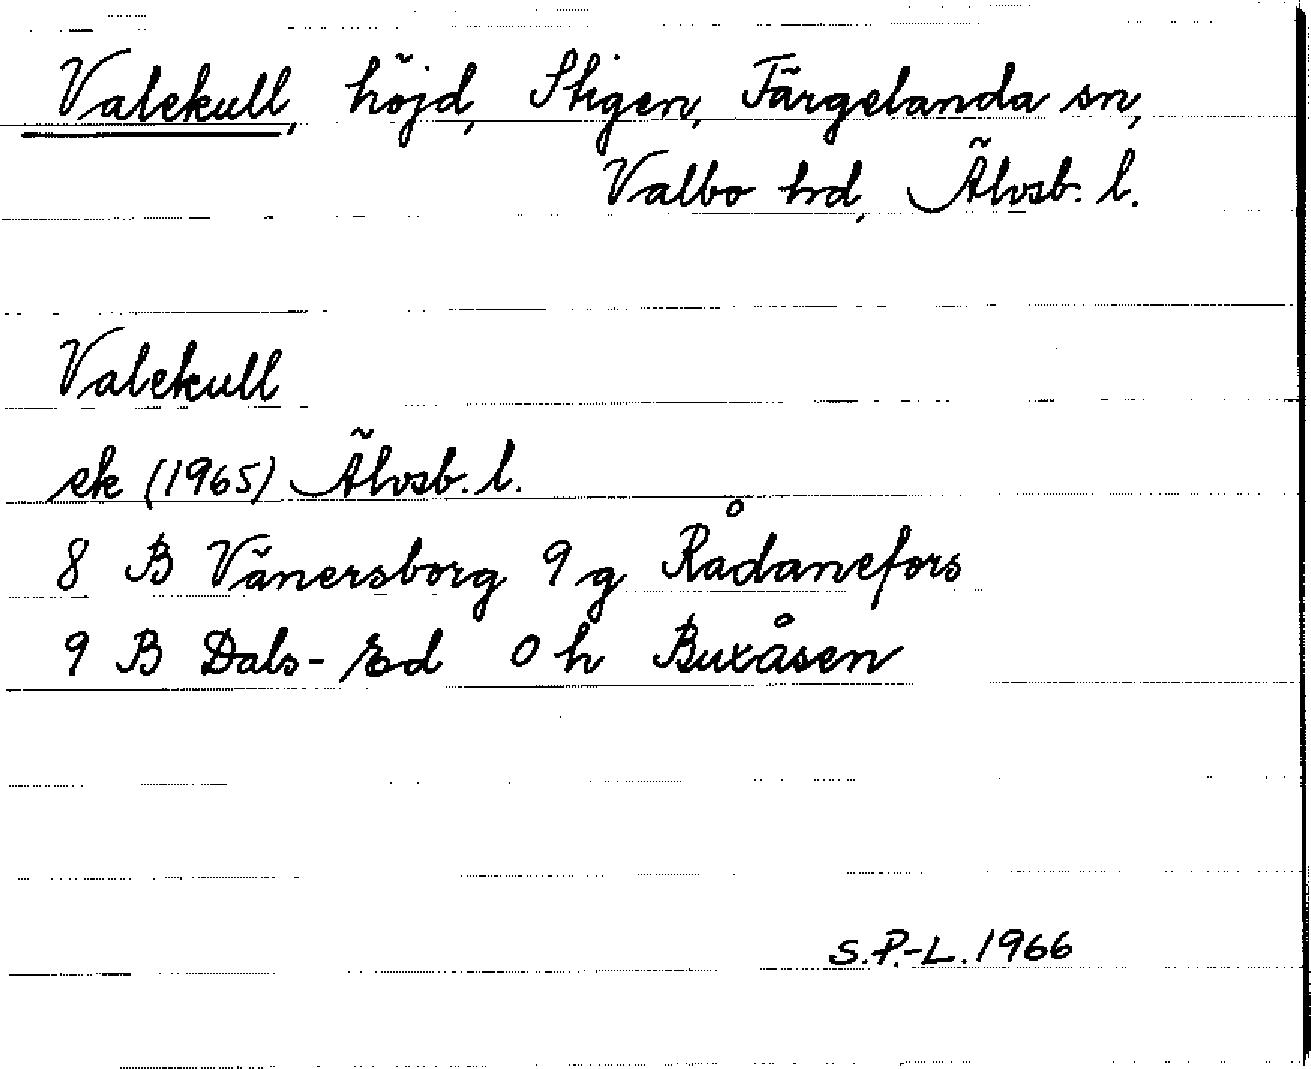 Valekull, höjd, Stigen, Färgelanda sn,
Valbo hd, Älvsb. l.
Valekull
ek (1965) Älvsb. l.
8 B Vänersborg 9 g Rådanefors
9 B Dals-Ed 0 h Buxåsen
S.P.-L. 1966